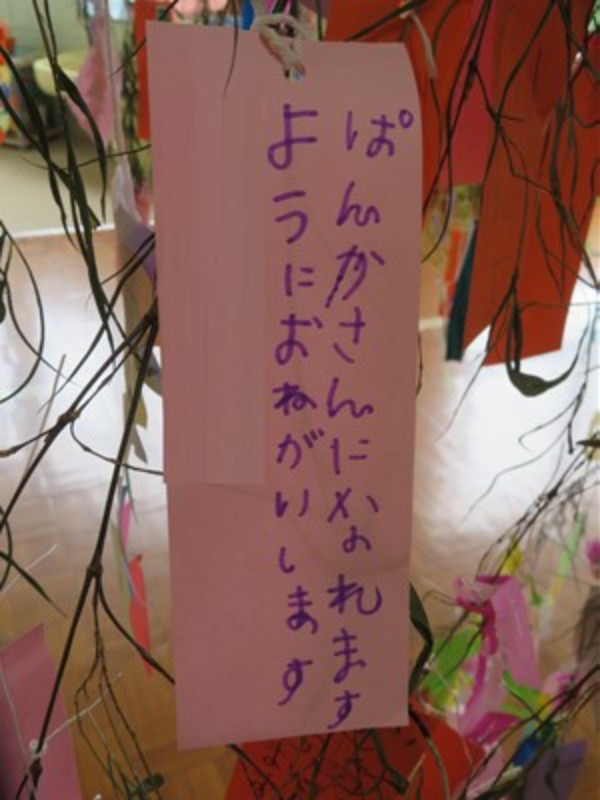 ぱんやさんになれます
ようにおねがいします